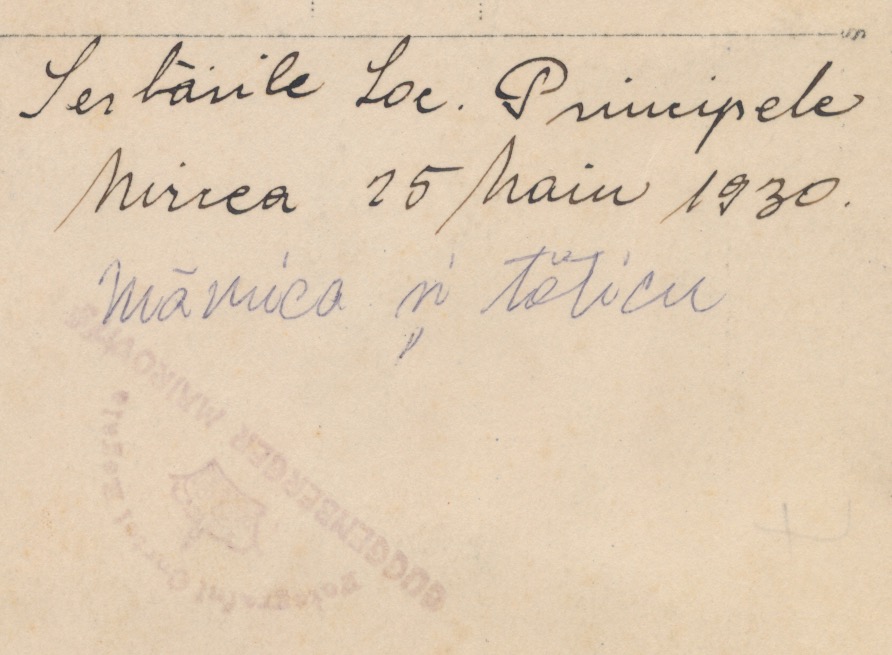 Serbările Soc. Principele
Mircea 25 Maiu 1930.
Mămica și tăticu
GUGGEMBERGER MAIROVITS
Fotograful Curței Regale